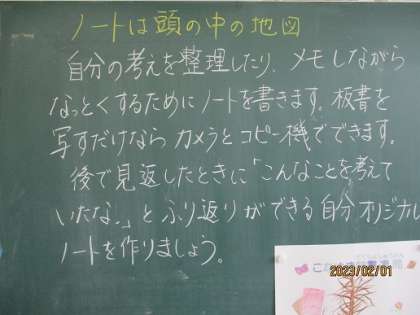 ノートは頭の中の地図
自分の考えを整理したり、メモしながら
なっとくするためにノートを書きます。板書を
写すだけならカメラとコピー機でできます。
後で見返したときに「こんなことを考えて
いたな。」とふり返りができる自分オリジナル
ノートを作りましょう。
2023/02/01